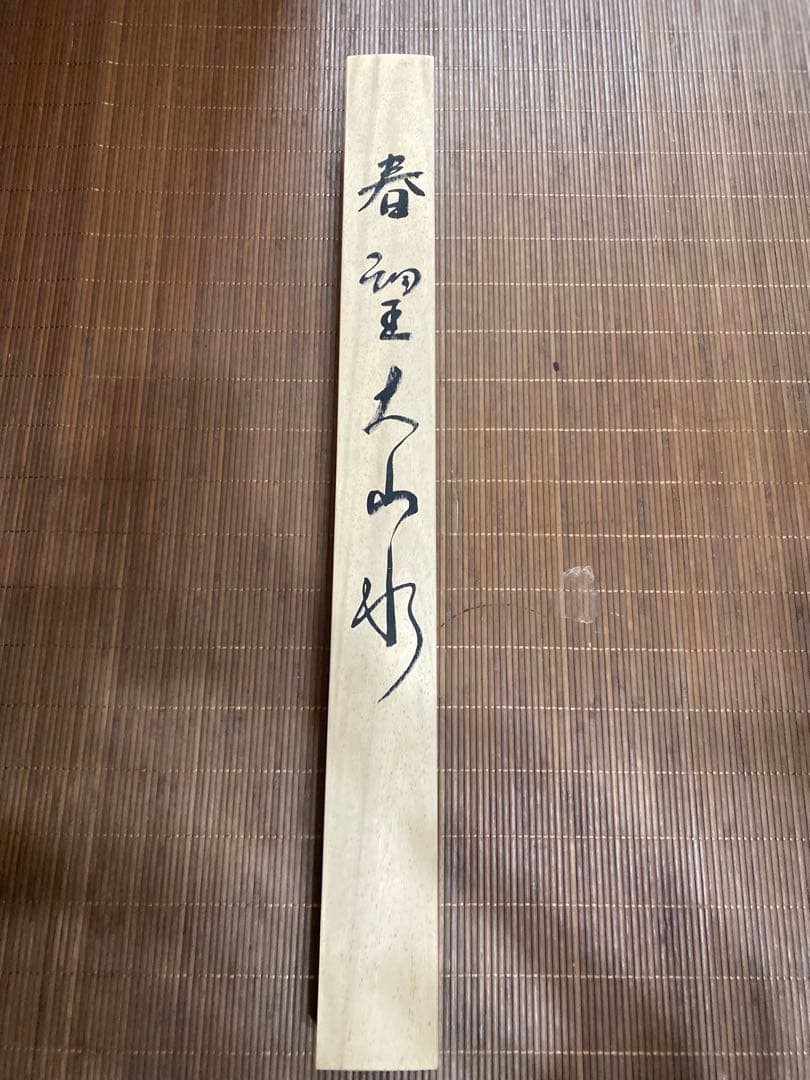 春望大山水